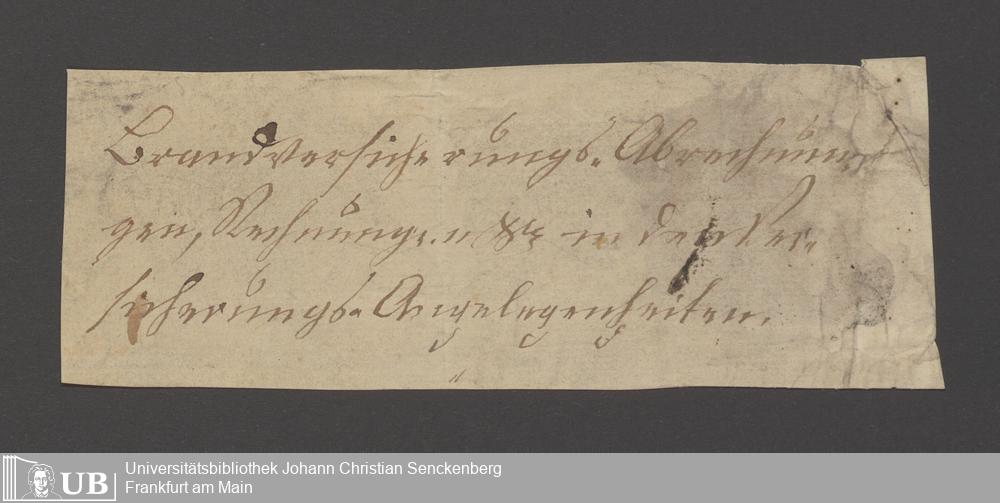 Brandversicherungs-Abrechnun-
gen, Rechnungen &c in den Ver-
sicherungs-Angelegenheiten.
UB
Universitätsbibliothek Johann Christian Senckenberg
Frankfurt am Main